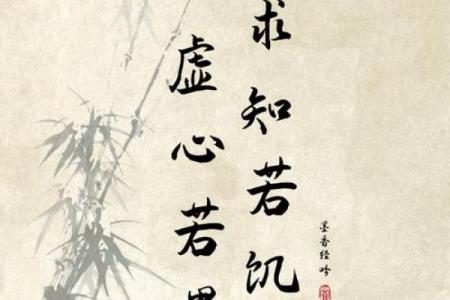 求知若饥
虚心若愚
墨香轻吟